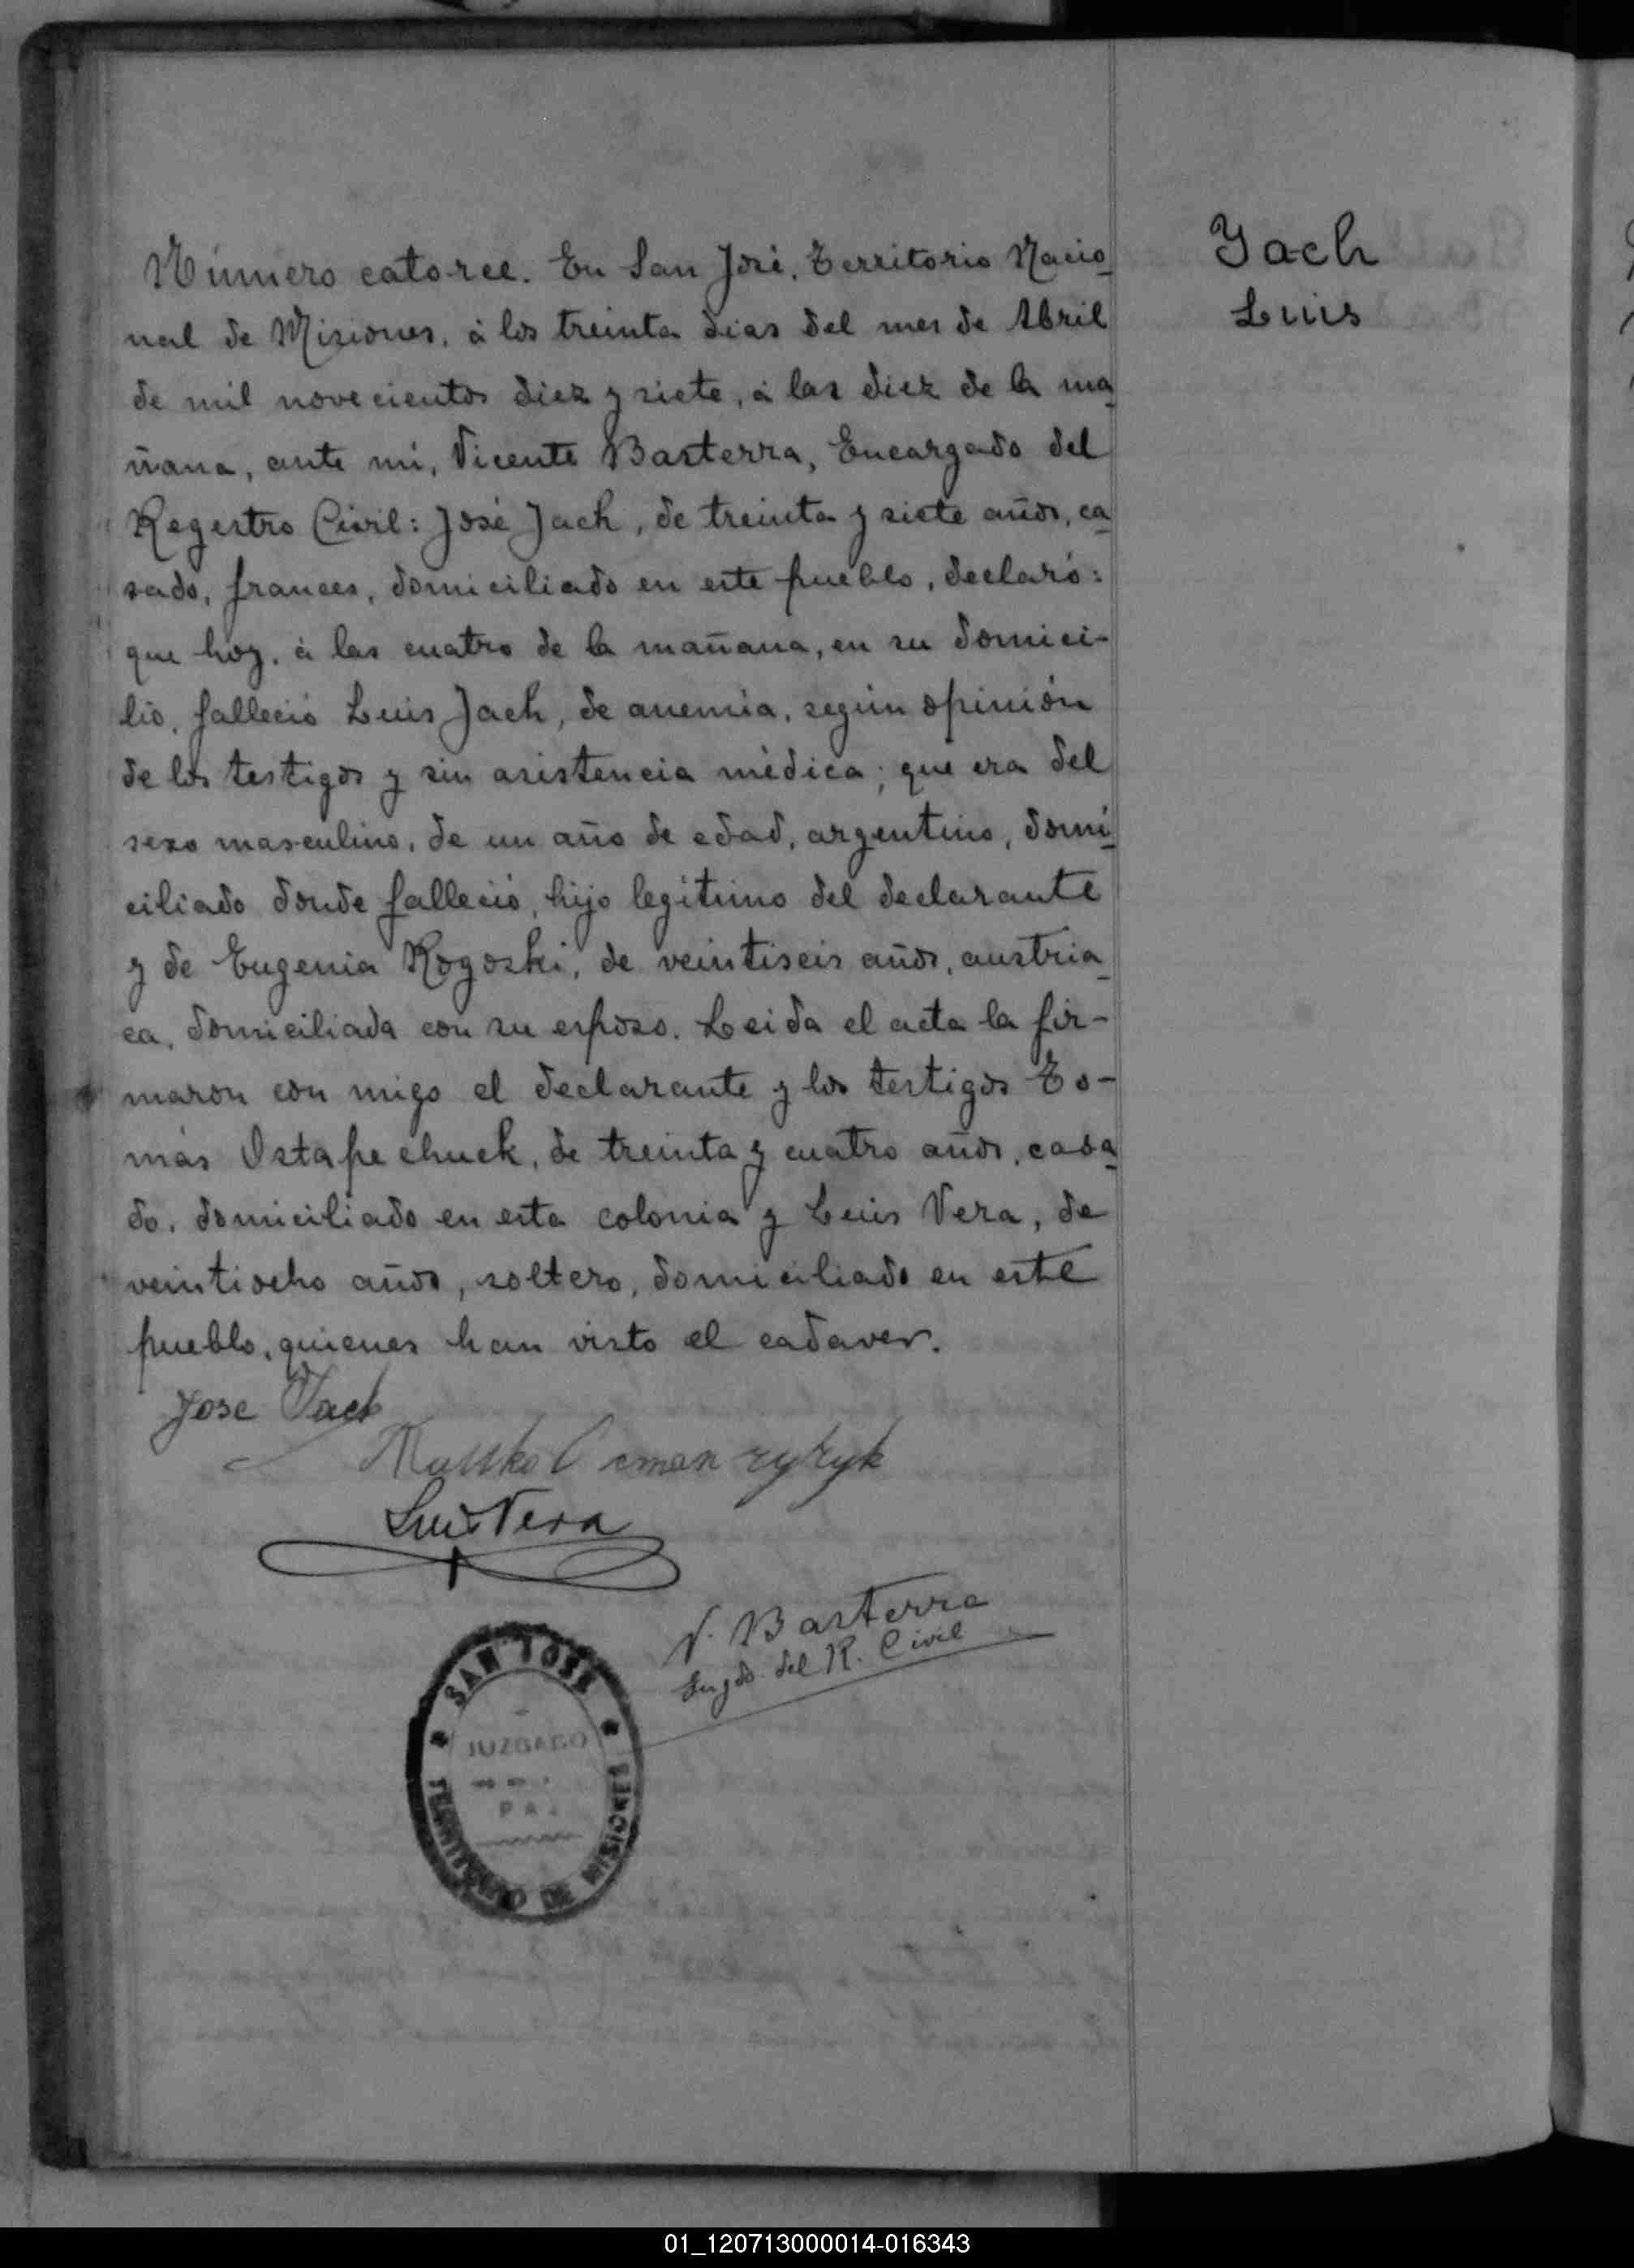 Número catorce. En San José, Territorio Nacio
nal de Misiones, á los treinta dias del mes de Abril
de mil novecientos diez y siete, á las diez de la ma
ñana, ante mi, Vicente Basterra, Encargado del
Regestro Civil: José Jach, de treinta y siete años, ca
sado, frances, domiciliado en este pueblo, declaró:
que hoy, á las cuatro de la mañana, en su domici-
lio, falleció Luis Jach, de anemia, según opinión
de los testigos y sin asistencia médica; que era del
sexo masculino, de un año de edad, argentino, domi
ciliado donde falleció, hijo legítimo del declarante
y de Eugenia Rogoski, de veintiseis años, austria
ca, domiciliada con su esposo. Leida el acta la fir-
maron con migo el declarante y los testigos To-
más Ostapechuck, de treinta y cuatro años, casa
do, domiciliado en esta colonia y Luis Vera, de
veintiocho años, soltero, domiciliado en este
pueblo, quienes han visto el cadaver.
Jach
Luis
Jose Jach
Luis Vera
V. Basterra
Engdo. del R. Civil
SAN JOSE
JUZGADO
PAZ
TERRITORIO DE MISIONES
01_120713000014-016343